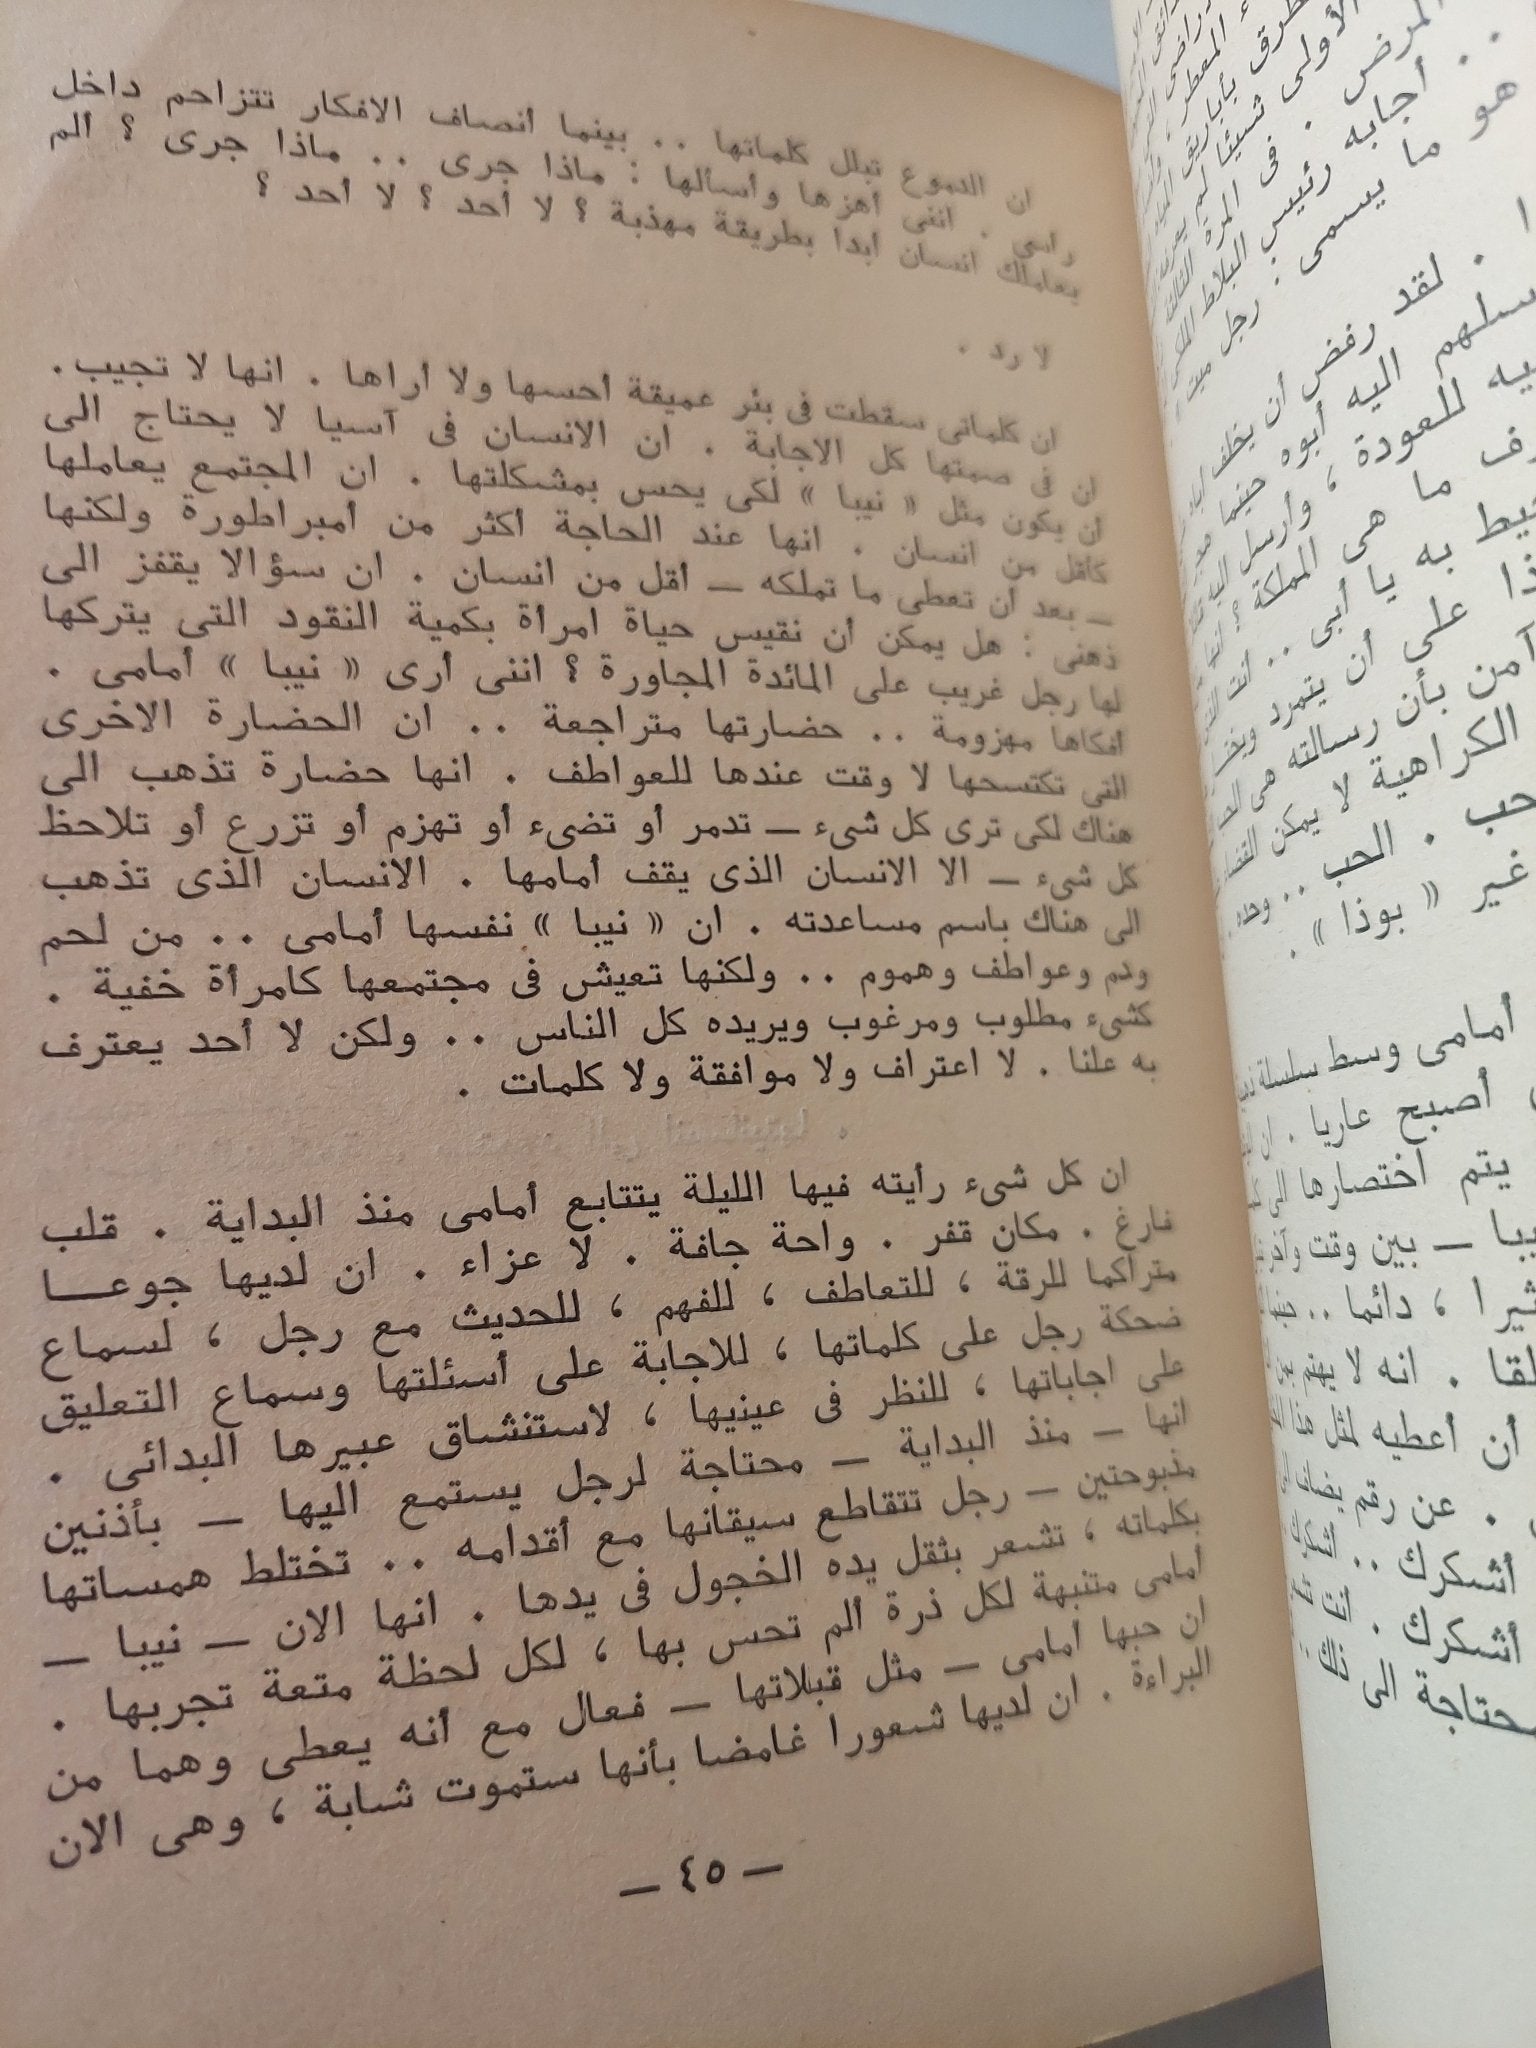 ان الدموع تبلل كلماتها .. بينما أنصاف الافكار تتزاحم داخل
رأسى . اننى أهزها وأسألها : ماذا جرى .. ماذا جرى ؟ ألم
يعاملك انسان أبدا بطريقة مهذبة ؟ لا أحد ؟ لا أحد ؟
لا رد .
ان كلماتى سقطت فى بئر عميقة أحسها ولا أراها . انها لا تجيب .
ان فى صمتها كل الاجابة . ان الانسان فى آسيا لا يحتاج الى
أن يكون مثل « نيبا » لكى يحس بمشكلتها . ان المجتمع يعاملها
كأقل من انسان . انها عند الحاجة أكثر من أمبراطورة ولكنها
ــ بعد أن تعطى ما تملكه ــ أقل من انسان . ان سؤالا يقفز الى
ذهنى : هل يمكن أن نقيس حياة امرأة بكمية النقود التى يتركها
لها رجل غريب على المائدة المجاورة ؟ اننى أرى « نيبا » أمامى .
أفكاها مهزومة .. حضارتها متراجعة .. ان الحضارة الاخرى
التى تكتسحها لا وقت عندها للعواطف . انها حضارة تذهب الى
هناك لكى ترى كل شىء ــ تدمر أو تضىء أو تهزم أو تزرع أو تلاحظ
كل شىء ــ الا الانسان الذى يقف أمامها . الانسان الذى تذهب
الى هناك باسم مساعدته . ان « نيبا » نفسها أمامى .. من لحم
ودم وعواطف وهموم .. ولكنها تعيش فى مجتمعها كامرأة خفية .
كشىء مطلوب ومرغوب ويريده كل الناس .. ولكن لا أحد يعترف
به علنا . لا اعتراف ولا موافقة ولا كلمات .
ان كل شىء رأيته فيها الليلة يتتابع أمامى منذ البداية . قلب
فارغ . مكان قفر . واحة جافة . لا عزاء . ان لديها جوعـــا
متراكما للرقة ، للتعاطف ، للفهم ، للحديث مع رجل ، لسماع
ضحكة رجل على كلماتها ، للاجابة على أسئلتها وسماع التعليق
على اجاباتها ، للنظر فى عينيها ، لاستنشاق عبيرها البدائى .
انها ــ منذ البداية ــ محتاجة لرجل يستمع اليها ــ بأذنين
مذبوحتين ــ رجل تتقاطع سيقانها مع أقدامه .. تختلط همساتها
بكلماته ، تشعر بثقل يده الخجول فى يدها . انها الان ــ نيبا ــ
أمامى متنبهة لكل ذرة ألم تحس بها ، لكل لحظة متعة تجربها .
ان حبها أمامى ــ مثل قبلاتها ــ فعال مع أنه يعطى وهما من
البراءة . ان لديها شعورا غامضا بأنها ستموت شابة ، وهى الان
ــ ٤٥ ــ
المرض . فى المرة الثالثة
.. أجابه رئيس البلاط الملكى
هو ما يسمى : رجل ميت .
. لقد رفض أن يخلف أباه
اليه أبوه حينما
للعودة ، وأرسل اليه
ما هى المملكة ؟ انها
به يا أبى .. أنت الذى
على أن يتمرد
بأن رسالته هى
الكراهية لا يمكن
. الحب .. وحده .
غير « بوذا » .
أمامى وسط سلسلة
أصبح عاريا . ان
يتم اختصارها الى
ــ بين وقت وآخر
، دائما ..
. انه لا يهتم
أن أعطيه لمثل هذا
. عن رقم يضاف الى
أشكرك .. أشكرك
أشكرك . أنت
الى ذلك